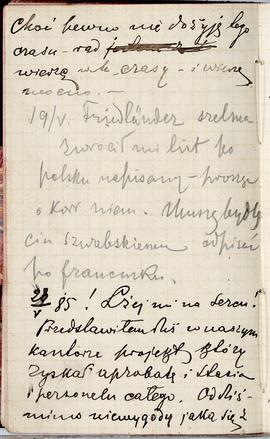 Choć pewno nie dożyję tego
czasu - rad
wierzę w te czasy - i wierzę
mocno. -
19/V. Friedländer szelma
zwrócił mi list po
polsku napisany - proszę
o kor niem. Muszę bydlę
ciu szwabskiemu odpisać
po francusku.
28/V 85! Lżej mi na sercu!
Przedstawiłem dziś w naszym
kantorze projekt który
zyskał aprobatę i Stasia
i personelu całego. Od dziś
mimo niewygody jaką się z